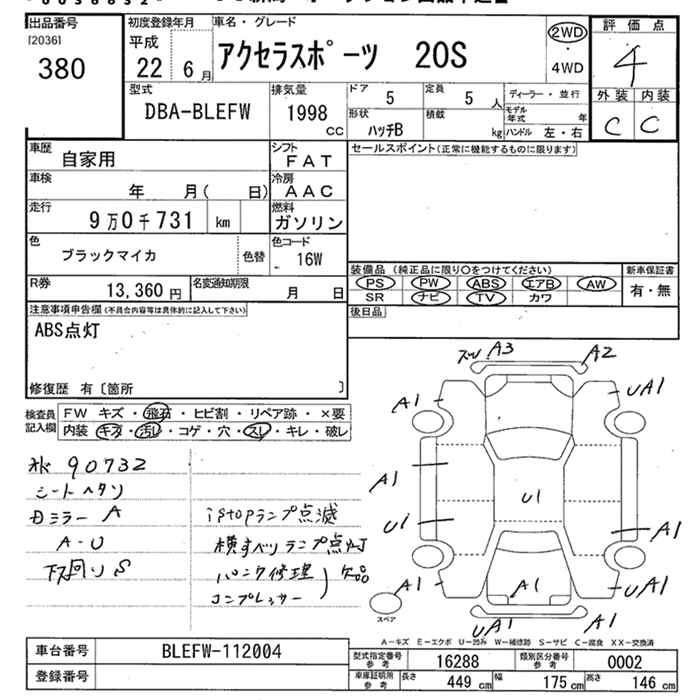 出品番号
[2036]
380
初度登録年月
平成
22 6月
車名・グレード
アクセラスポーツ 20S
2WD
・
4WD
評価点
4
外装 内装
C C
型式
DBA-BLEFW
排気量
1998
CC
ドア
5
定員
5 人
ディーラー・並行
形状
ハッチB
積載
kg
モデル年式 年
ハンドル 左・右
車歴
自家用
シフト
FAT
セールスポイント(正常に機能するものに限ります)
車検
年 月( 日)
冷房
AAC
走行
9万0千731 km
燃料
ガソリン
色
ブラックマイカ
色替
色コード
- 16W
装備品 (純正品に限り○をつけてください)
PS PW ABS エアB AW
SR ナビ TV カワ
新車保証書
有・無
R券
13,360円
名変通知期限
月 日
後日品
注意事項申告欄(不具合内容等は具体的に記入して下さい)
ABS点灯
修復歴 有〔箇所 〕
検査員記入欄
FW キズ・飛石・ヒビ割・リペア跡・×要
内装 キズ・汚レ・コゲ・穴・スレ・キレ・破レ
90732
シートヘタリ
ミラー A
A-U
下回りS
istopランプ点滅
横すべりランプ点灯
パンク修理
コンプレッサー
欠品
A3
A2
A1
UA1
A1
U1
U1
A1
A1
A1
UA1
UA1
A1
スペア
A-キズ E-エクボ U-凹み W-補修跡 S-サビ C-腐食 XX-交換済
車台番号
BLEFW-112004
登録番号
型式指定番号
参考
16288
類別区分番号
参考
0002
車庫証明用
参考
長さ 449 cm
幅 175 cm
高さ 146 cm